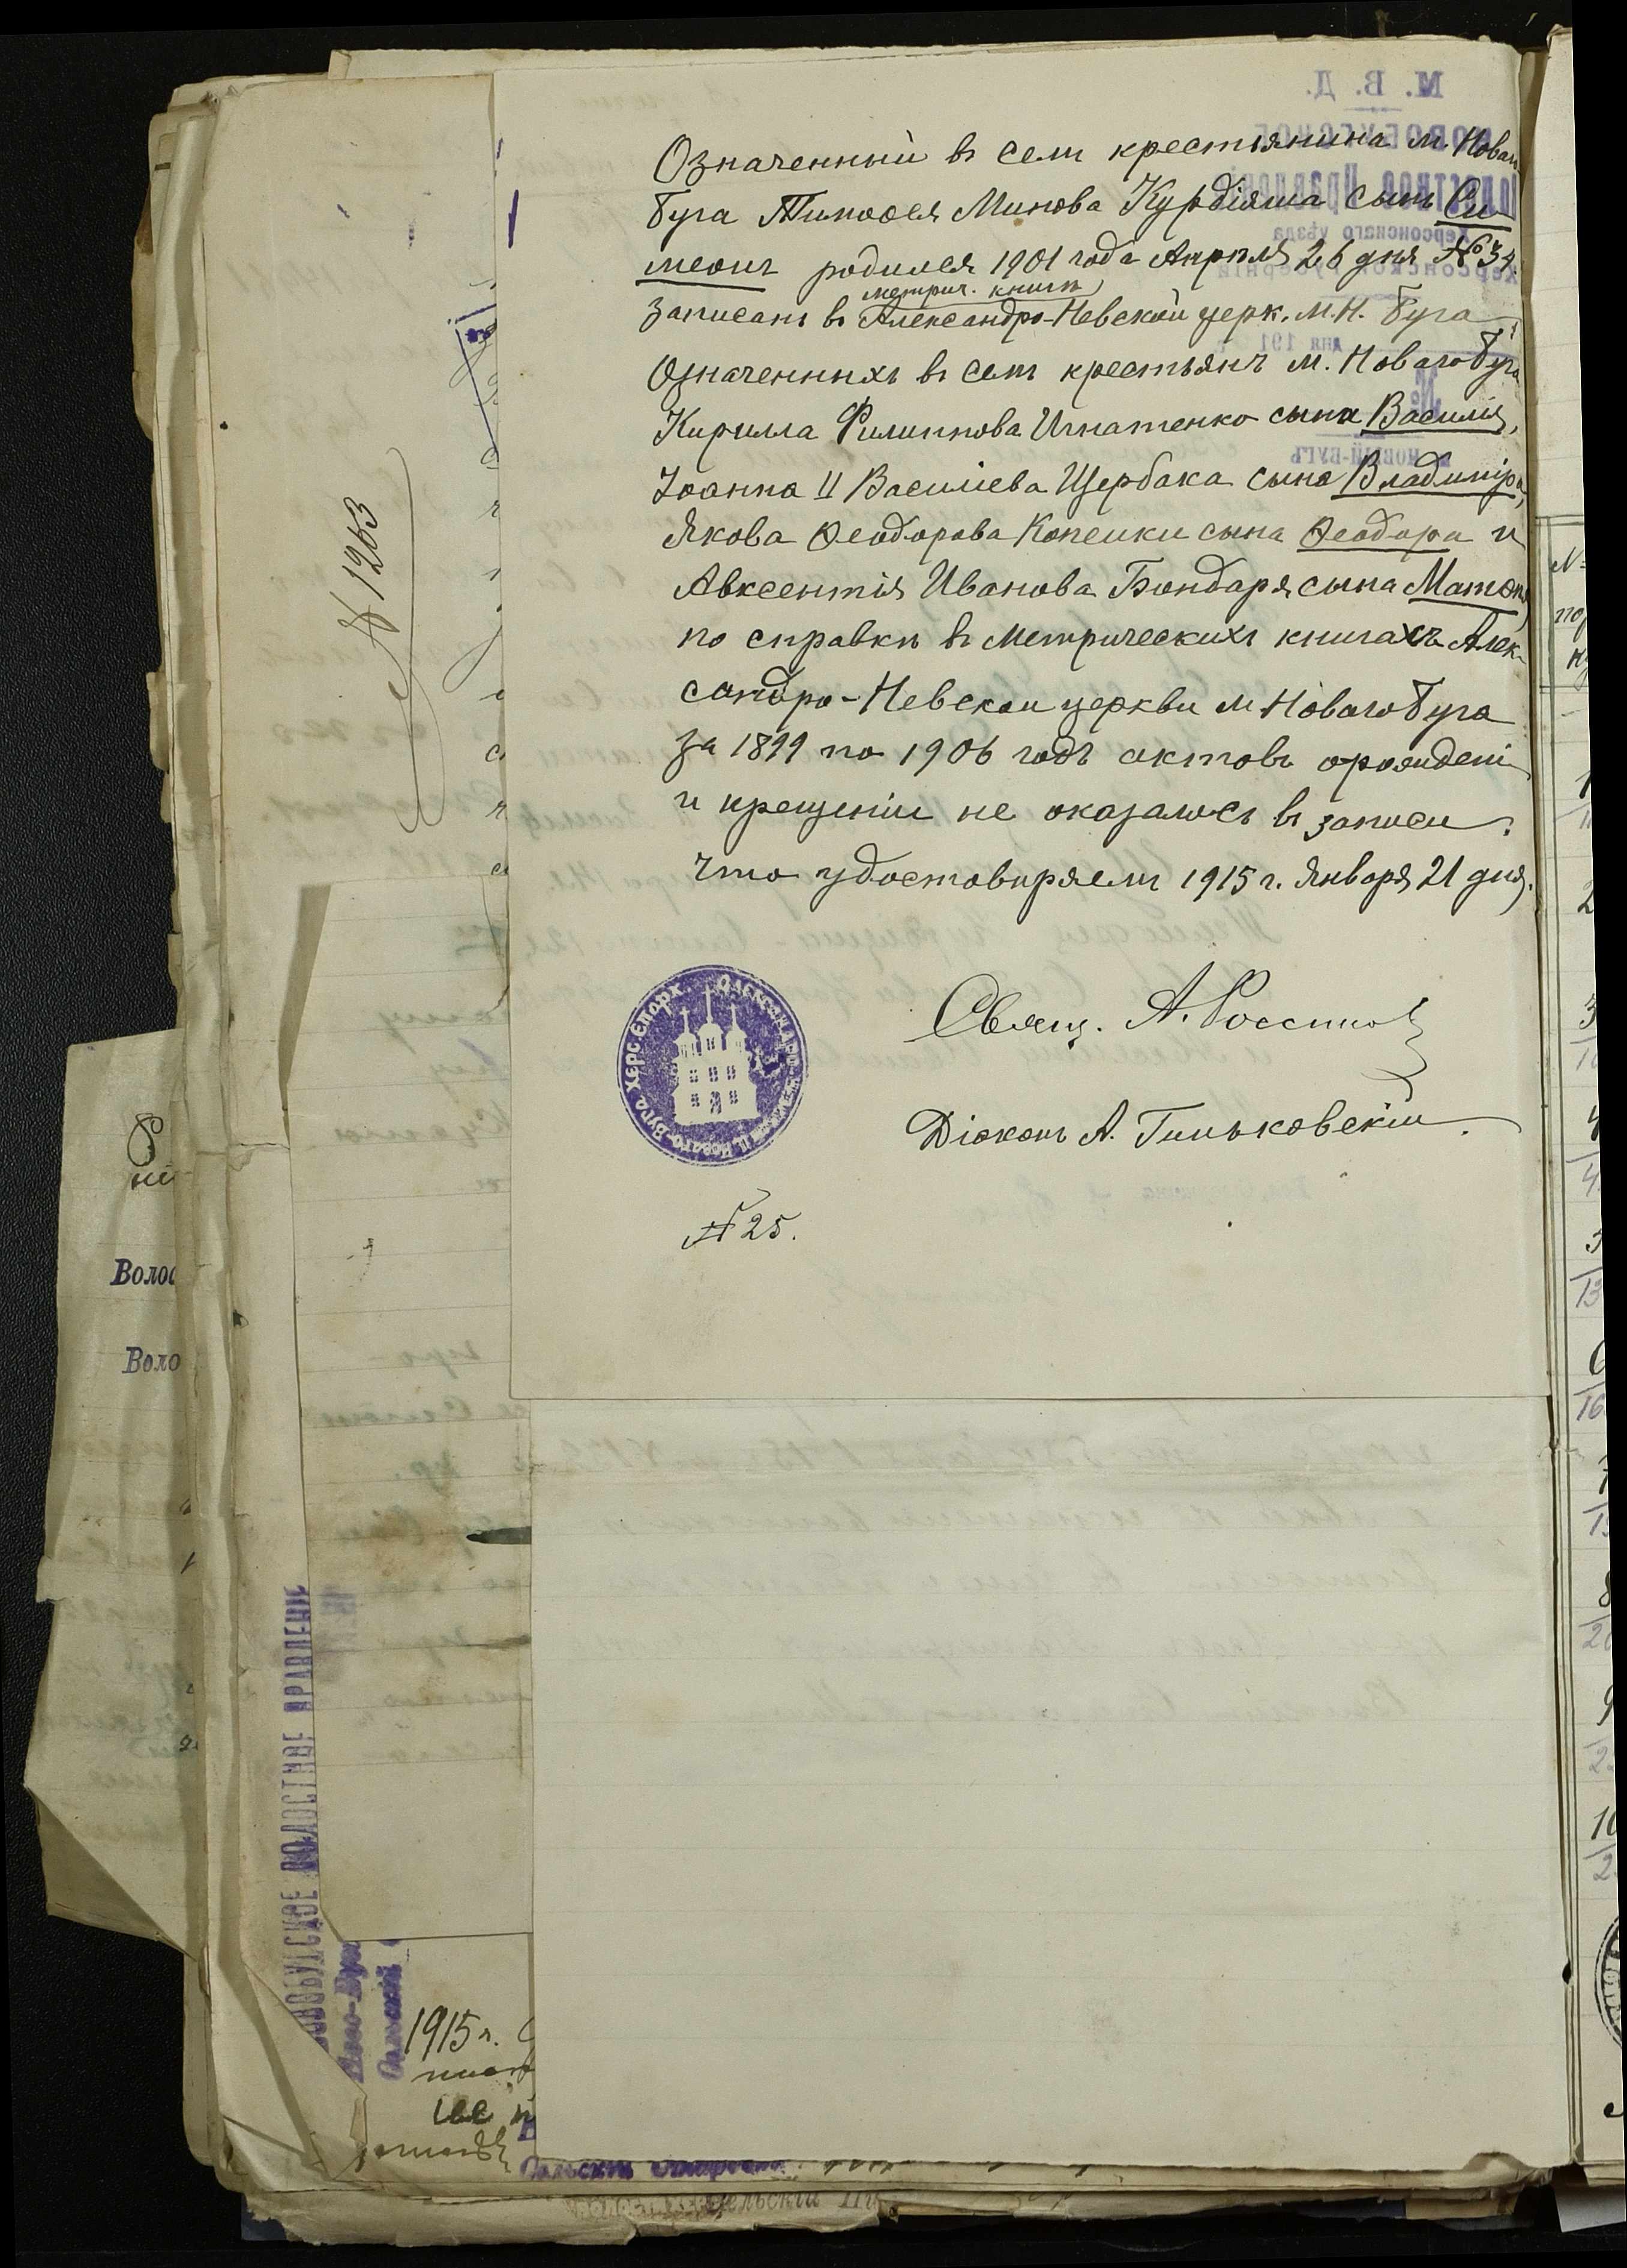 Означенный въ семъ крестьянина м. Новаго
Буга Тимоѳея Минова Курдіяша сынъ Си-
меонъ родился 1901 года Апрѣля 26 дня № 34.
метрич. книгѣ
записанъ въ Александро-Невской церк. м. Н. Буга
Означенныхъ въ семъ крестьянъ м. Новаго Буга
Кирилла Филиппова Игнатенко сына Василія,
Іоанна II Василіева Щербака сына Владиміра,
Якова Ѳеодорова Копейки сына Ѳеодора и
Авксентія Иванова Бондаря сына Матѳія,
по справкѣ въ метрическихъ книгахъ Алек-
сандро-Невской церкви м. Новаго Буга
за 1899 по 1906 годъ актовъ о рожденіи
и крещеніи не оказалось въ записи.
Что удостовѣряемъ 1915 г. Января 21 дня.
Свящ. А.
Діаконъ А. Гиньковскій.
№ 25.
№ 1263
М. В. Д.
Новобугское
Волостное Правленіе
Херсонскаго уѣзда
Херсонской губерніи
дня 191
№
м. НОВЫЙ-БУГЪ
Волос
Воло
НОВОБУГСКОЕ ВОЛОСТНОЕ ПРАВЛЕНІЕ
1915 г.